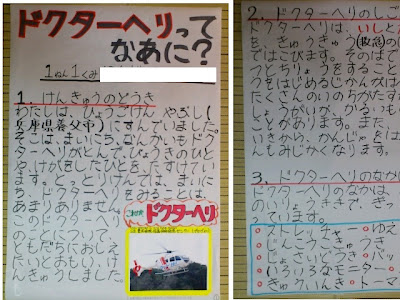 ドクターヘリって
なあに?
1ねん1くみ
1. けんきゅうのどうき
わたしは、ひょうごけん やぶし(
兵庫県養父市)にすんでいました。
そこは、まいにち、なんかいもドク
ターヘリがとんで、びょうきのひと
や、けがをしたひとを、たすけてい
ます。とっとりけんは、まいに
ち、
あまりありません。
このドクターへ
リについて、
ともだちにおしえ
たいとおもい、け
んきゅうしました。
ドクターヘリ
2. ドクターヘリのしご
ドクターヘリは、いしと
を、きゅうきゅう(救急)
ではこびます。そのばで
つとちりょうをすること
りょうをはじめるじかんが
たくさんのいのちがたす
しょうがいが、かるくも
ことがあります。また、
いきから、かんじゃを は
んもみじかくなります。
3. ドクターヘリのなか
ドクターヘリのなかは、
って います。
ストレッチャー
いろいろなモニター